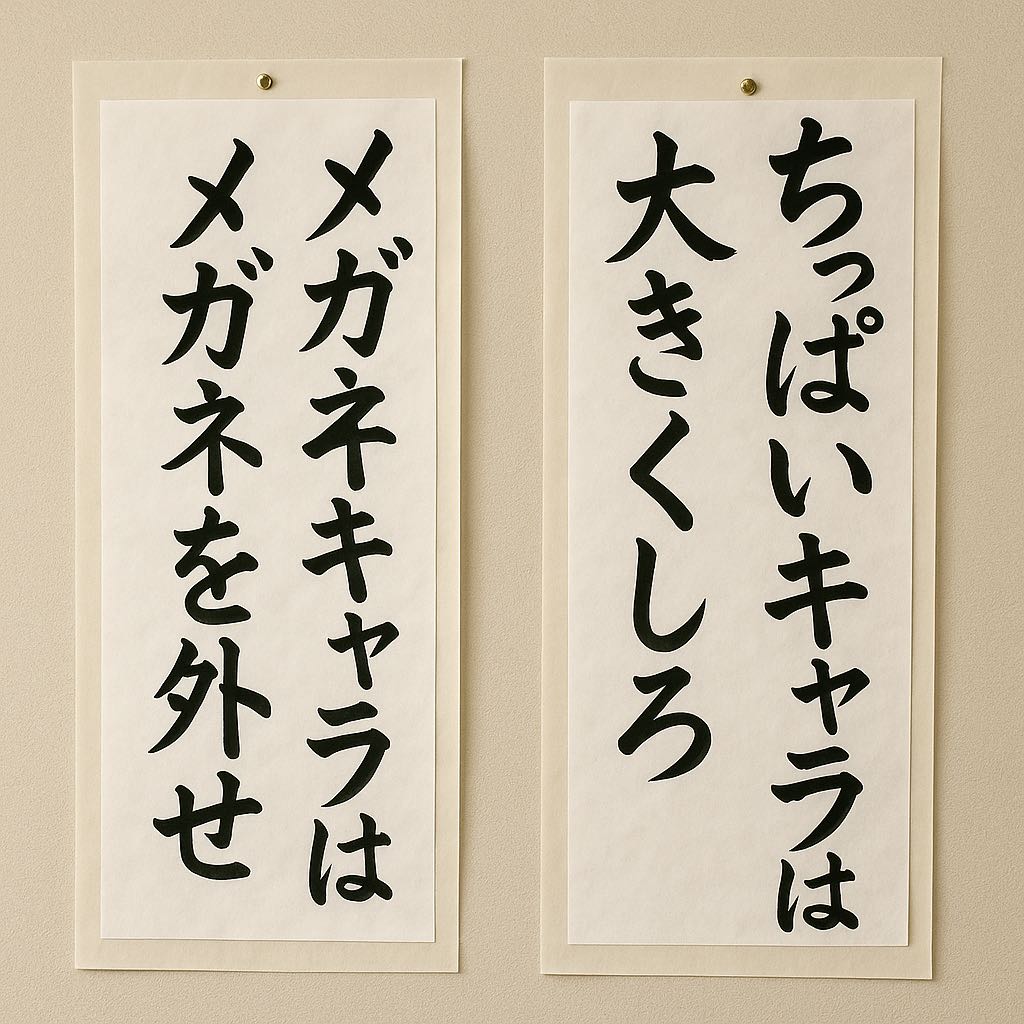 ちっぱいキャラは
大きくしろ
メガネキャラは
メガネを外せ